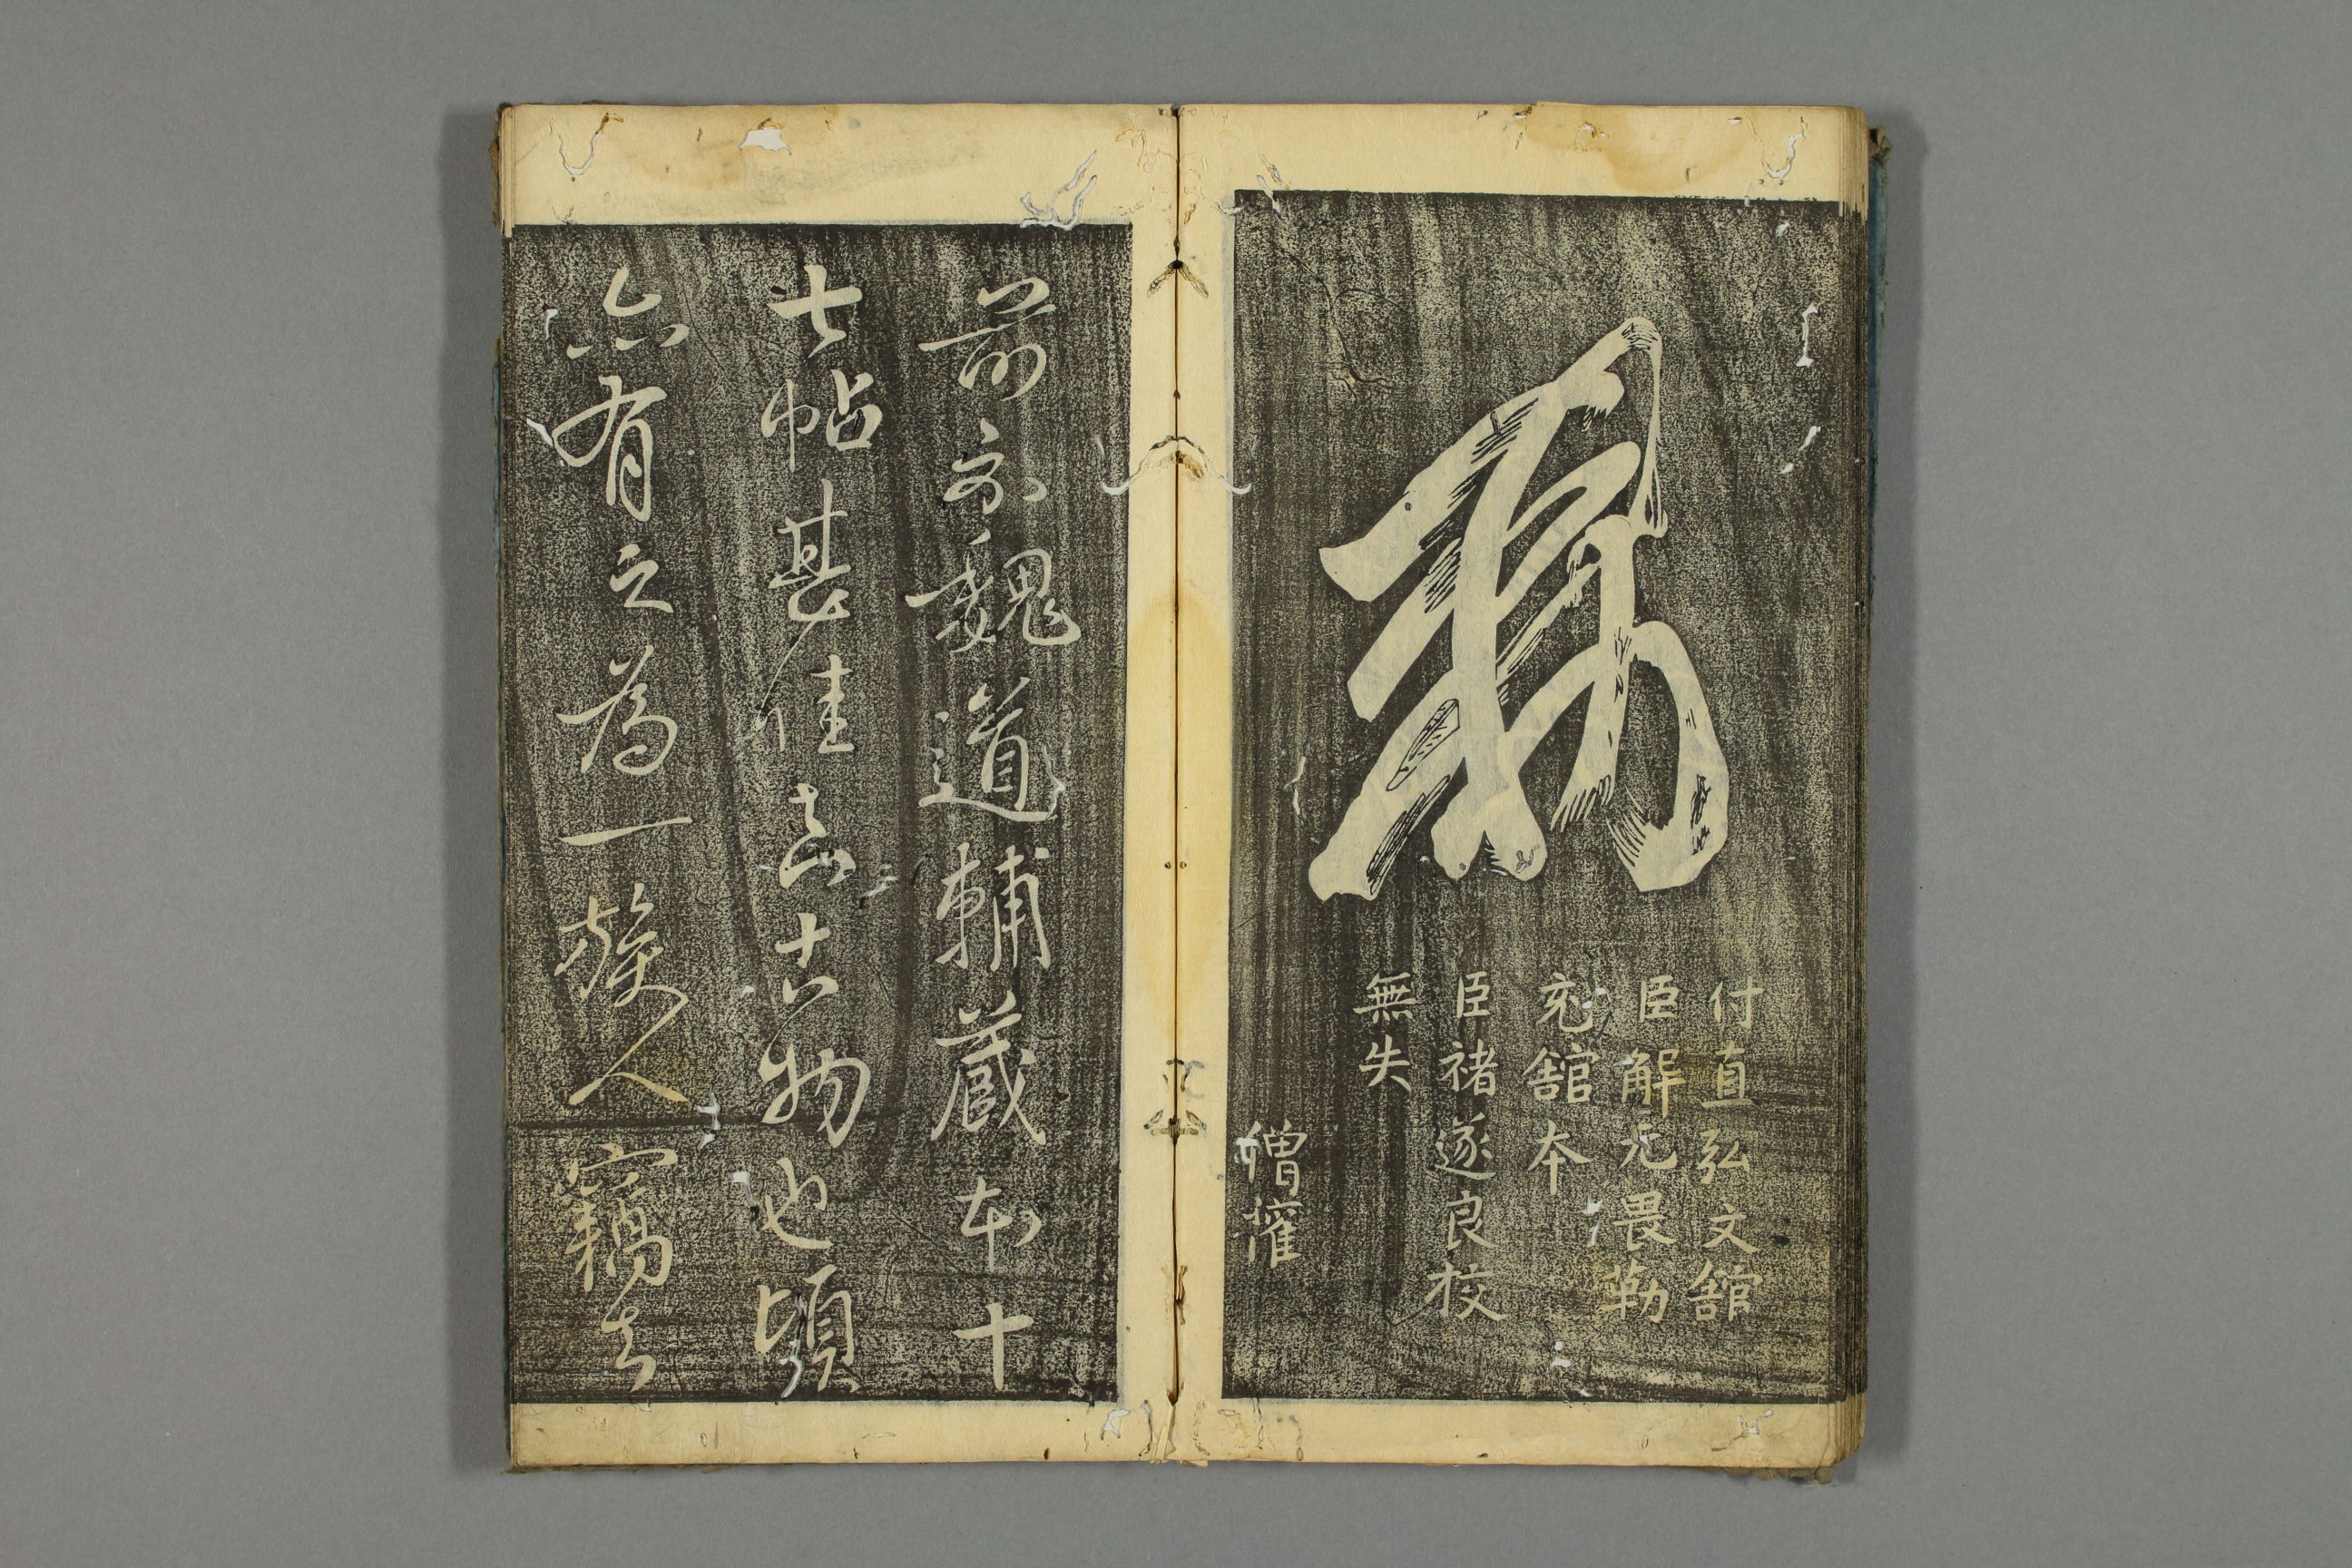 勅
付直弘文舘
臣解无畏勒
充舘本
臣褚遂良校
無失
僧㩁
前示魏道輔蔵本十
七帖甚佳真古物也頃
亦有之為一族人竊去